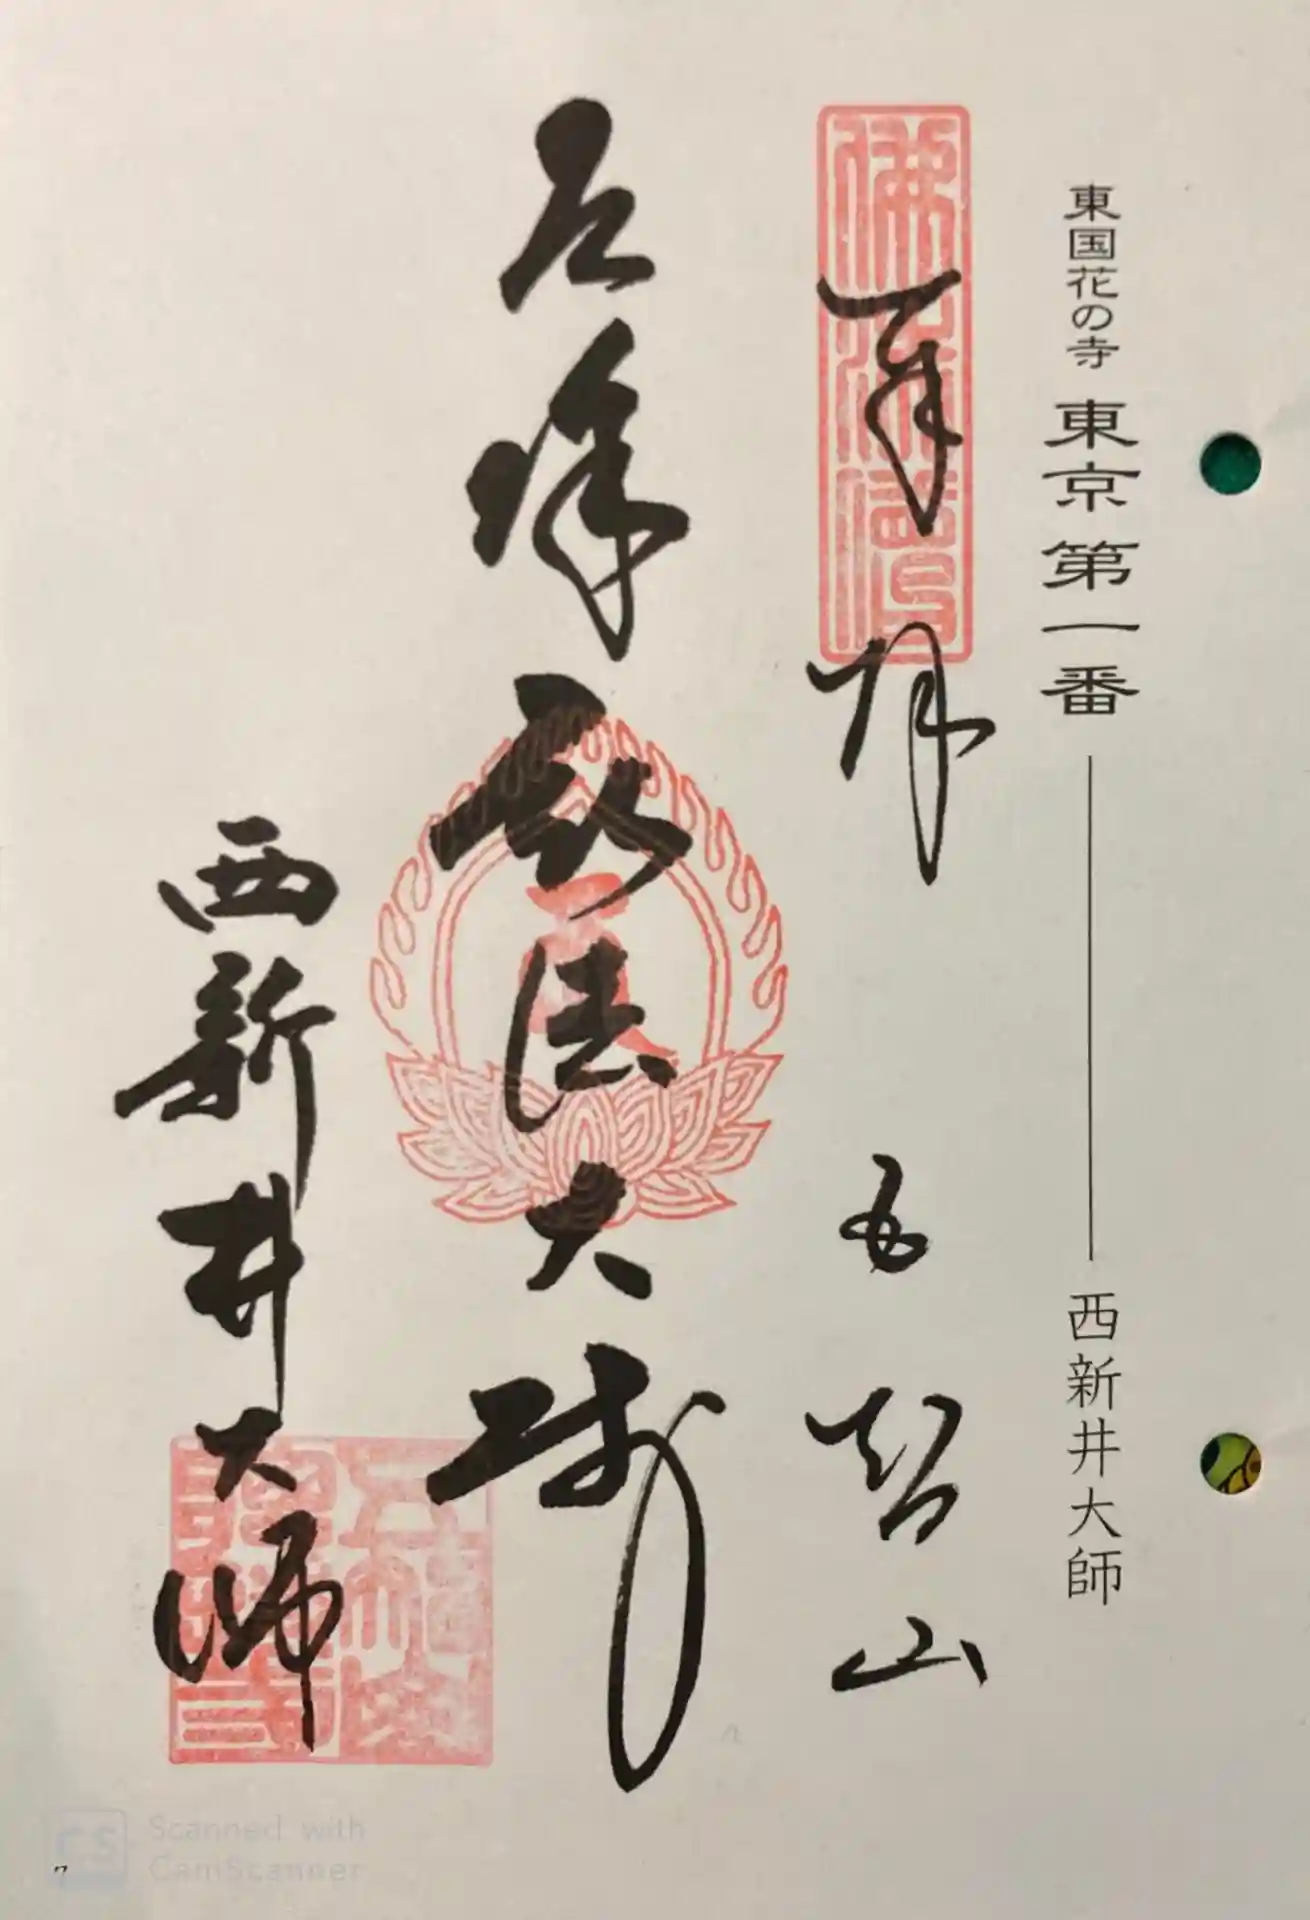 東国花の寺 東京第一番 西新井大師
奉拝 五智山
厄除弘法大師
西新井大師
CS
Scanned with
CamScanner
7